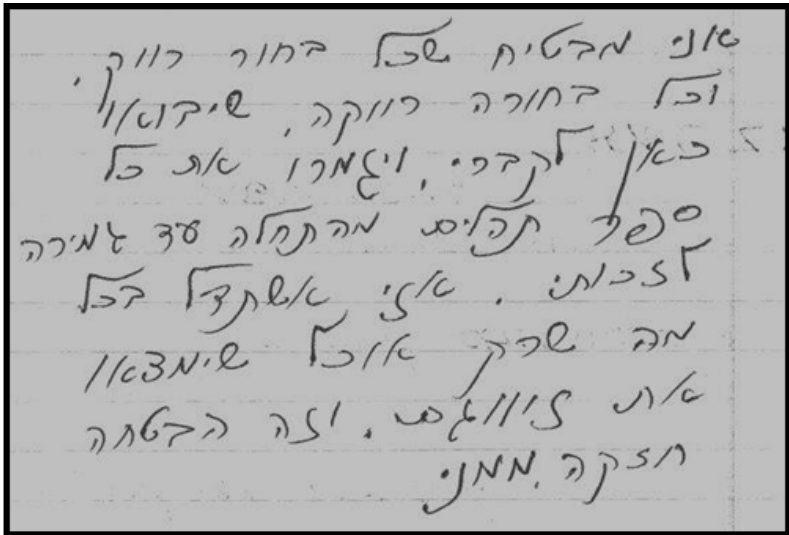 אני מבטיח שכל בחור רווק,
וכל בחורה רווקה, שיבואו
כאן לקברי, ויגמרו את כל
ספר תהלים מהתחלה עד גמירה
לזכותי. אזי אשתדל בכל
מה שרק אוכל שימצאו
את זיווגם. וזה הבטחה
חזקה ממני.